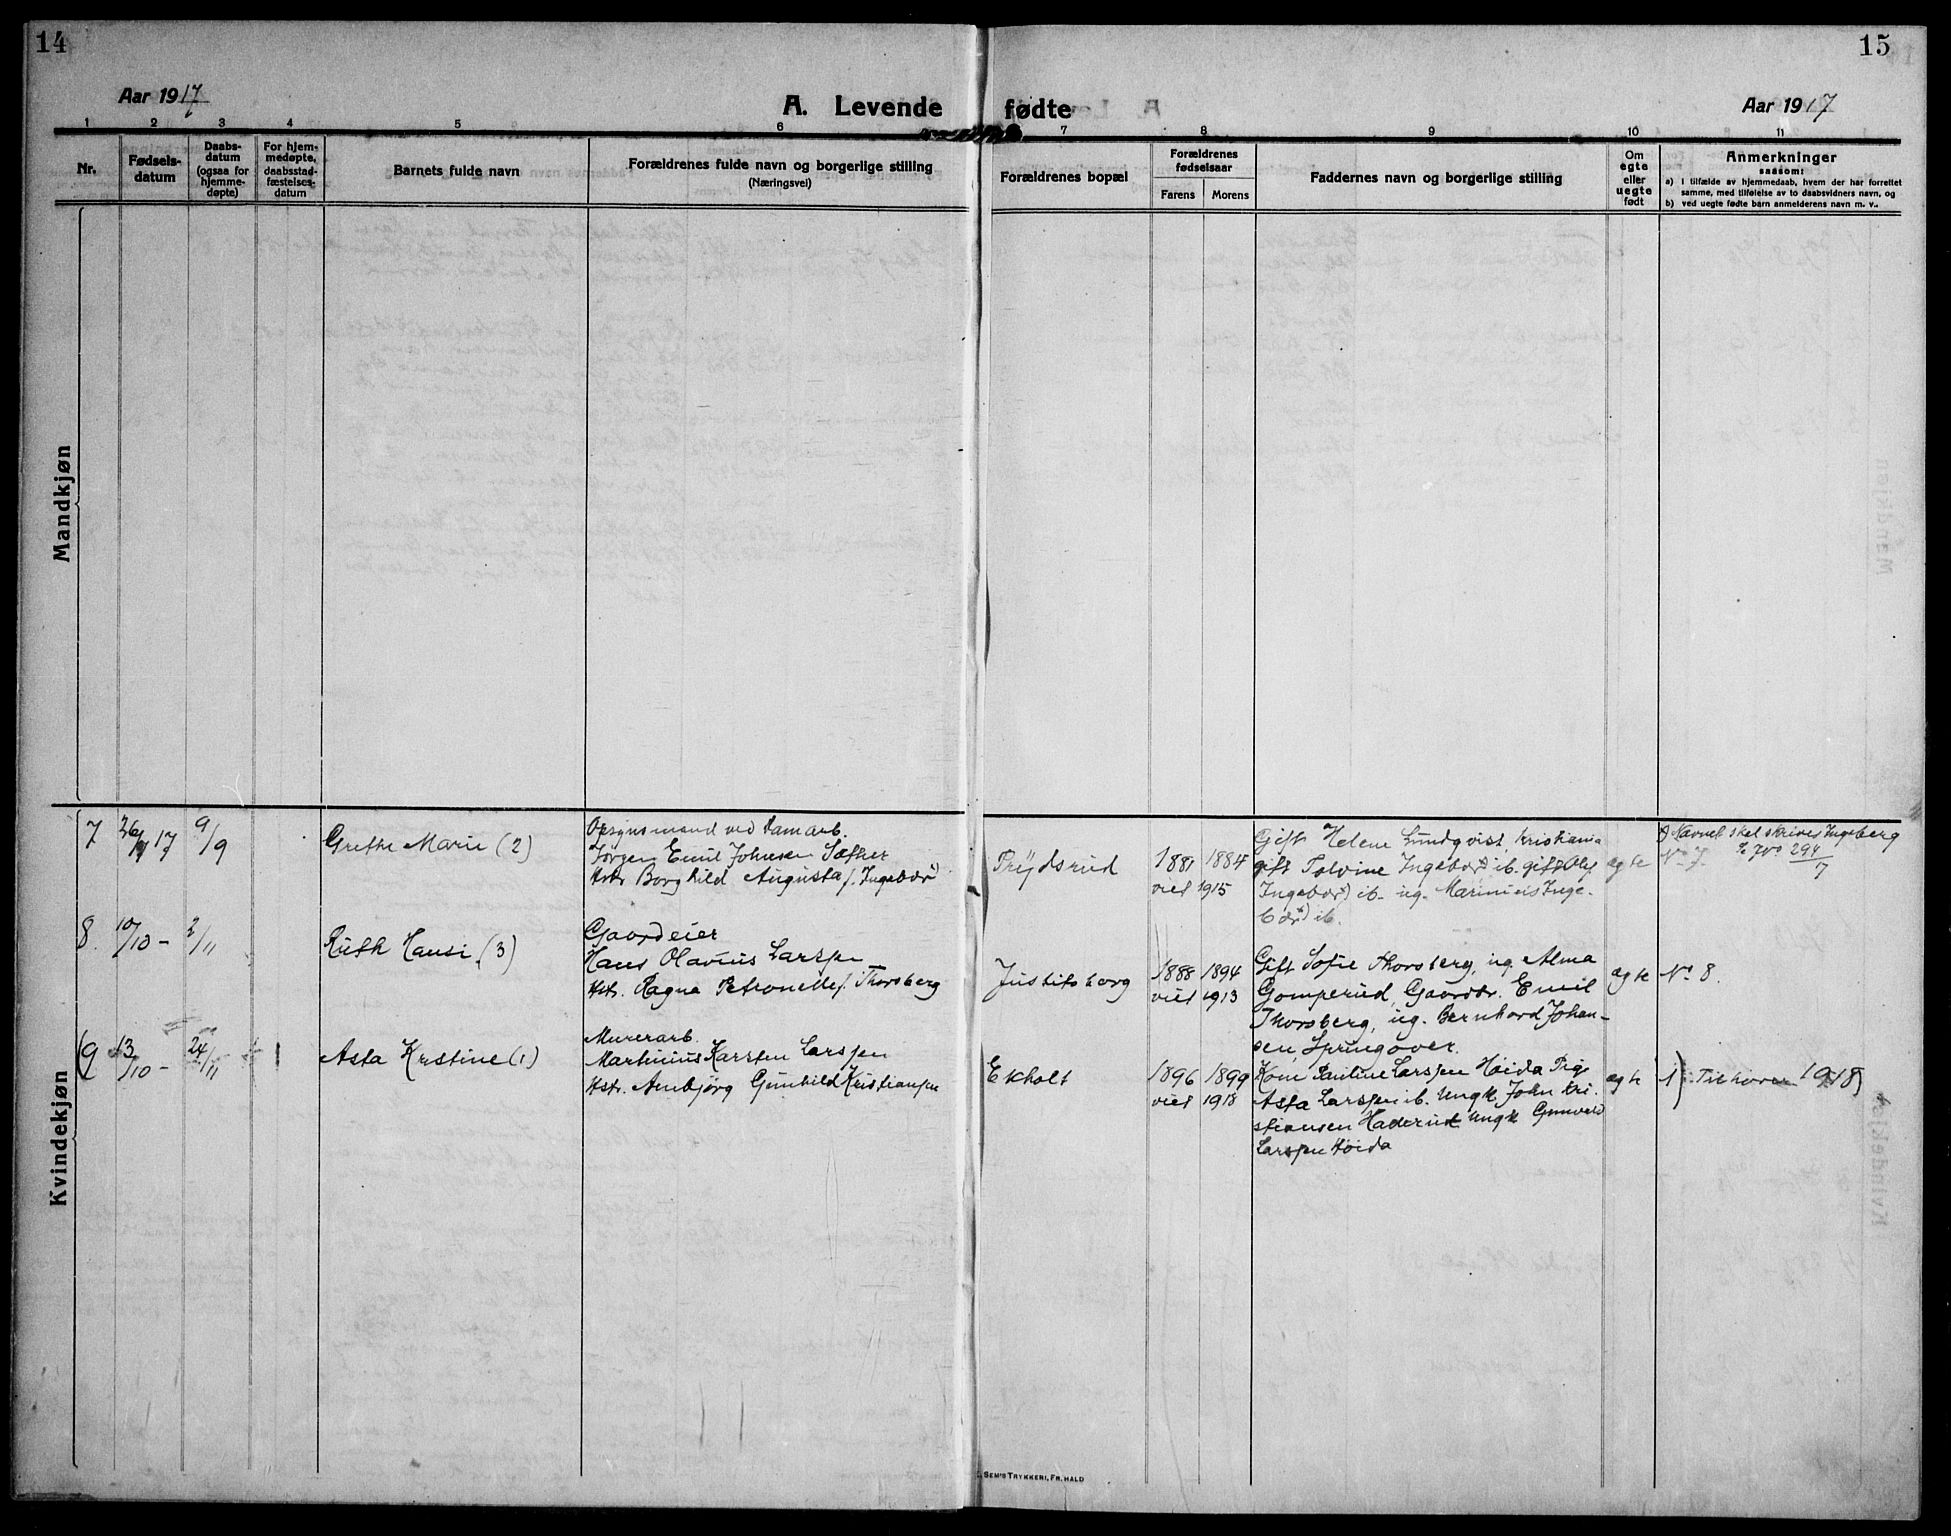 14
15
Aar 1917
A. Levende fødte
Aar 1917
1 2 3 4 5 6 7 8 9 10 11
Nr.
Fødsels-
datum
Daabs-
datum
(ogsaa for
hjemme-
døpte)
For hjem-
medøpte,
daabsstad-
fæstelses-
datum
Barnets fulde navn
Forældrenes fulde navn og borgerlige stilling
(Næringsvei)
Forældrenes bopæl
Forældrenes
fødselsaar
Farens Morens
Faddernes navn og borgerlige stilling
Om
egte
eller
uegte
født
Anmerkninger
saasom:
a) I tilfælde av hjemmedaab, hvem der har forrettet
samme, med tilføielse av to daabsvidners navn, og
b) ved uegte fødte barn anmelderens navn m. v.
Mandkjøn
Kvindekjøn
7 17 9/9
Grethe Marie (2)
Opsynsmand ved Damarb.
Jørgen Emil Johnsen Sæther
Hstr. Borghild Augusta f. Ingebær
1881 1884
viet 1915
Gift Helene Lundqvist, Kristiania
gift Tolvine Ingebær ib. gift Olaf
Ingebær ib. ug. Marinius Inge-
bær ib.
egte
Navnet skal skrives Ingeberg
No 7.
294
7
8. 10/10 - 2/11
Ruth Hansi (3)
Gaardeier
Hans Olavius Larsen
Hstr. Ragna Petronelle f. Thorsberg
Justitsborg
1888 1894
viet 1913
Gift Sofie Thorsberg, ug. Alma
Gomperud, Gaardbr. Emil
Thorsberg, ug. Bernhard Johan-
sen, Springover.
egte
No 8.
(9 13/10 - 24/11
Asta Kristine (1)
Murerarb.
Martinius Karsten Larsen
Hstr. Arnbjørg Gunhild Kristiansen
Ekholt
1896 1899
viet 1918
Kone Pauline Larssen Høida Pig
Asta Larssen ib. Ungk. John Kri-
stiansen Haderud Ungk Gunvald
Larssen Høida
egte
1) Tilhører 1918)
SEM'S TRYKKERI, FR. HALD